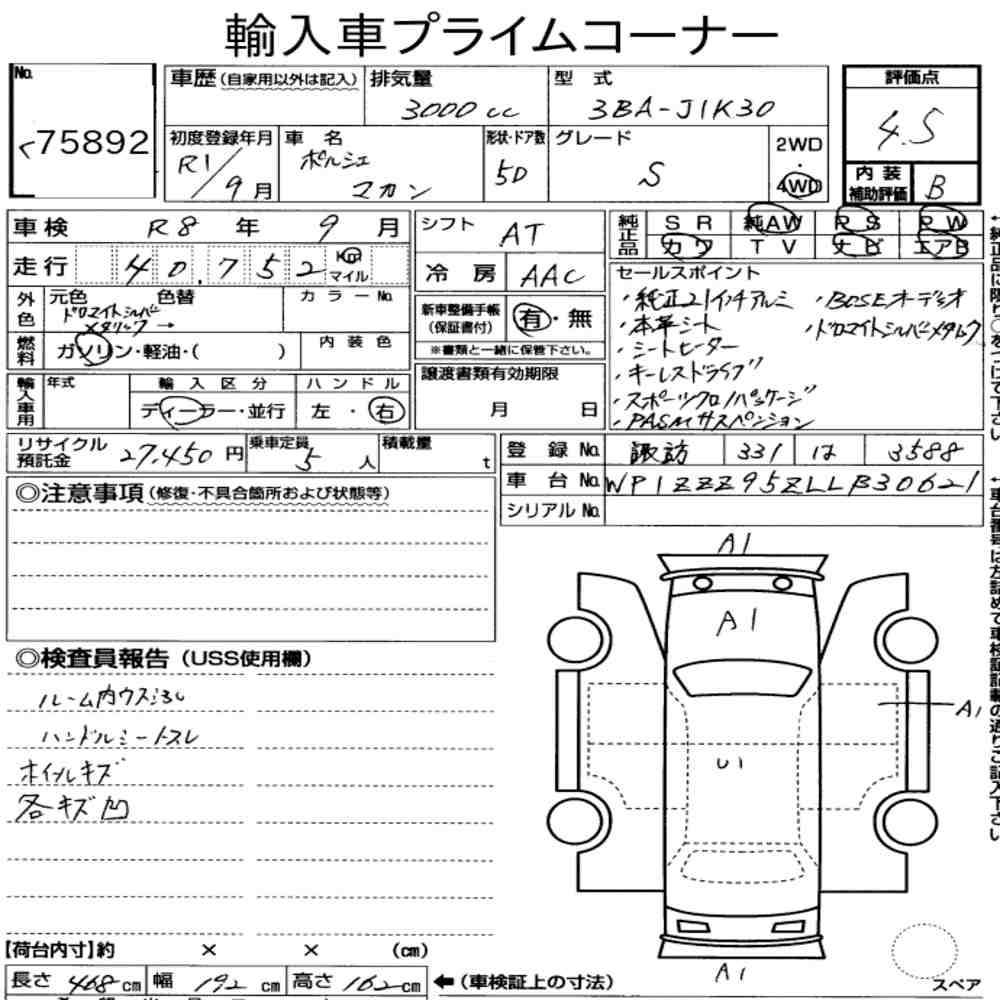 輸入車プライムコーナー
No. 75892
車歴 (自家用以外は記入)
排気量 3000cc
型式 3BA-J1K30
評価点 4.5
初度登録年月 R1/9月
車名 ポルシェ マカン
形状・ドア数 5D
グレード S
2WD・4WD
内装補助評価 B
車検 R8年 9月
シフト AT
純正品 SR 純AW PS PW
カワ TV ナビ エアB
走行 40,752 Km マイル
冷房 AAC
外色 元色 色替 カラーNo.
ドロマイトシルバーメタリック →
新車整備手帳(保証書付) 有・無
※書類と一緒に保管下さい。
燃料 ガソリン・軽油・( )
内装色
輸入車用 年式 輸入区分 ハンドル
ディーラー・並行 左・右
譲渡書類有効期限
月 日
セールスポイント
・純正21インチアルミ ・BOSEオーディオ
・本革シート ・ドロマイトシルバーメタリック
・シートヒーター
・キーレスドライブ
・スポーツクロノパッケージ
・PASMサスペンション
リサイクル預託金 27,450円
乗車定員 5人
積載量 t
登録No. 諏訪 331 は 3588
車台No. WP1ZZZ95ZLLB30621
シリアルNo.
◎注意事項(修復・不具合箇所および状態等)
◎検査員報告(USS使用欄)
ルーム内ウスヨゴレ
ハンドルシートスレ
ホイルキズ
各キズ凹
A1
A1
A1
U1
A1
スペア
【荷台内寸】約 × × (cm)
長さ 468cm 幅 192cm 高さ 162cm
←(車検証上の寸法)